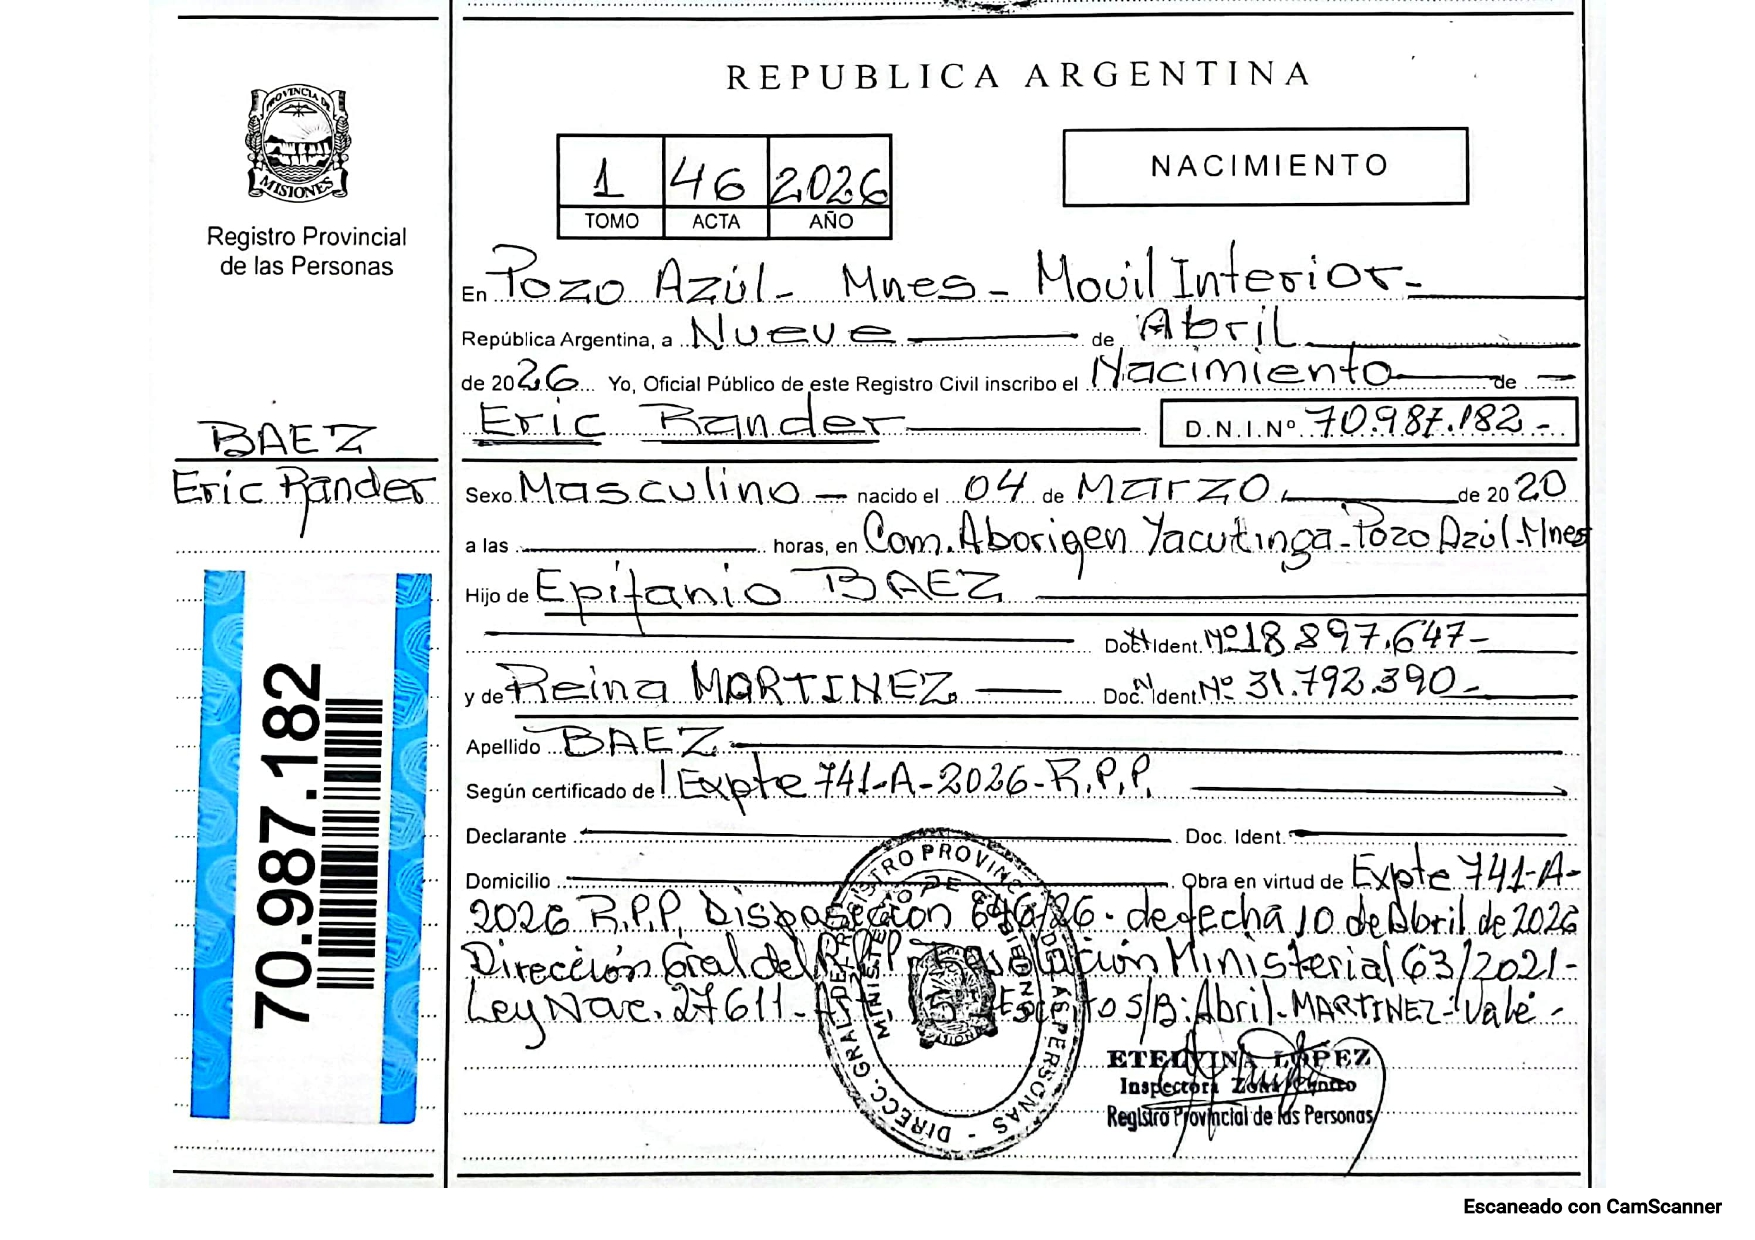 PROVINCIA DE
MISIONES
Registro Provincial
de las Personas
BAEZ
Eric Rander
70.987.182
REPUBLICA ARGENTINA
1 46 2026
TOMO ACTA AÑO
NACIMIENTO
En Pozo Azúl - Mnes - Movil Interior -
República Argentina, a Nueve de Abril
de 2026 Yo, Oficial Público de este Registro Civil inscribo el Nacimiento de
Eric Rander D.N.I.Nº 70.987.182.-
Sexo Masculino nacido el 04 de Marzo de 2020
a las horas, en Com. Aborigen Yacutinga - Pozo Azúl - Mnes
Hijo de Epifanio BAEZ
Doc. Ident. Nº 18.897.647-
y de Reina MARTINEZ Doc. Ident. Nº 31.792.390.-
Apellido BAEZ
Según certificado de Expte 741-A-2026-R.P.P.
Declarante Doc. Ident.
Domicilio Obra en virtud de Expte 741-A-
2026 R.P.P. Disposición 646/26 - de fecha 10 de Abril de 2026
Dirección Gral del R.P.P. Resolución Ministerial 63/2021-
Ley Nac. 27611- S/B: Abril - MARTINEZ - Vale -
DIRECC. GRAL. DEL REGISTRO PROVINCIAL DE LAS PERSONAS -
MINISTERIO DE GOBIERNO
ETELVINA LOPEZ
Inspectora Zona Centro
Registro Provincial de las Personas
Escaneado con CamScanner